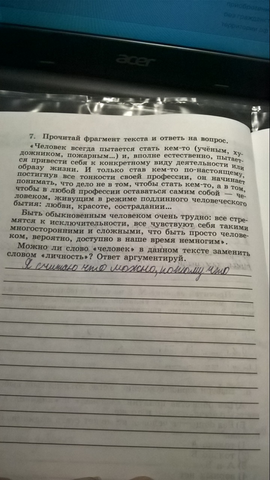 acer
7. Прочитай фрагмент текста и ответь на вопрос.
«Человек всегда пытается стать кем-то (учёным, ху-
дожником, пожарным...) и, вполне естественно, пытает-
ся привести себя к конкретному виду деятельности или
образу жизни. И только став кем-то по-настоящему,
постигнув все тонкости своей профессии, он начинает
понимать, что дело не в том, чтобы стать кем-то, а в том,
чтобы в любой профессии оставаться самим собой — че-
ловеком, живущим в режиме подлинного человеческого
бытия: любви, красоте, сострадании...
Быть обыкновенным человеком очень трудно: все стре-
мятся к исключительности, все чувствуют себя такими
многосторонними и сложными, что быть просто челове-
ком, вероятно, доступно в наше время немногим».
Можно ли слово «человек» в данном тексте заменить
словом «личность»? Ответ аргументируй.
Я считаю что можно, потому что